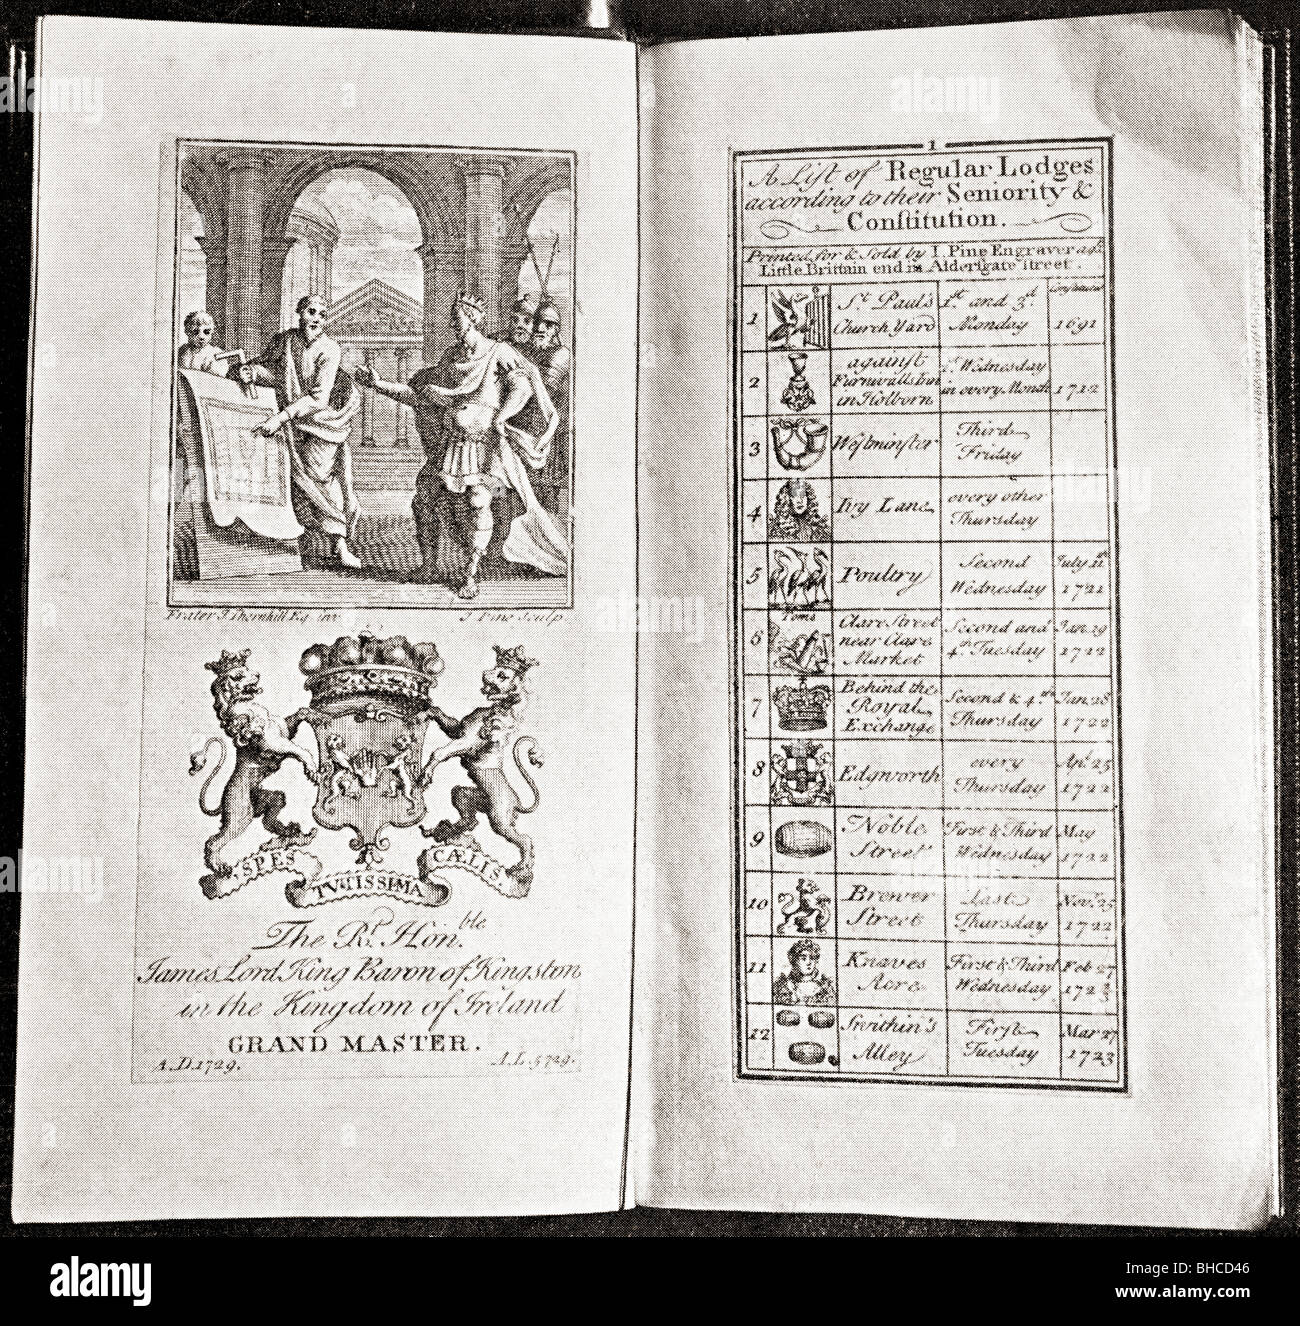 Frater J. Thornhill Eq. inv.
J. Pine Sculp.
SPES TUTISSIMA CÆLIS
The Rt. Hon.ble
James Lord King Baron of Kingston
in the Kingdom of Ireland
GRAND MASTER.
A.D. 1729. A.L. 5729.
1
A List of Regular Lodges
according to their Seniority &
Constitution.
Printed for & Sold by I. Pine Engraver agst.
Little Brittain end in Aldersgate street.
1 St. Paul's Church Yard 1st. and 3d. Monday 1691
2 against Furnivalls Inn in Holborn Wednesday in every Month 1712
3 Westminster Third Friday
4 Ivy Lane every other Thursday
5 Poultry Second Wednesday July 11th 1721
6 Toms Clare Street near Clare Market Second and 4th. Tuesday Jan. 19 1722
7 Behind the Royal Exchange Second & 4th. Thursday Jan. 28 1722
8 Edgworth every Thursday Apl. 25 1722
9 Noble Street First & Third Wednesday May 1722
10 Brewer Street Last Thursday Novr. 25 1722
11 Knaves Acre First & Third Wednesday Feb 27 1722/3
12 Swithin's Alley First Tuesday Mar 27 1723
alamy
Image ID: BHCD46
www.alamy.com